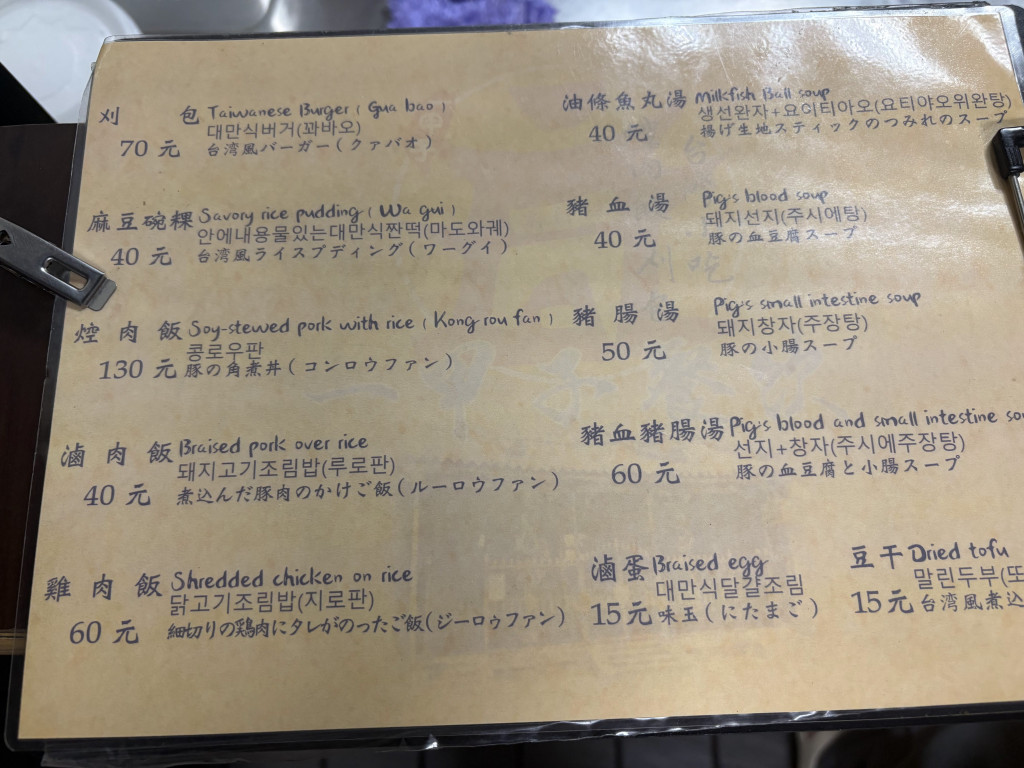 刈 包 Taiwanese Burger ( Gua bao )
대만식버거(꽈바오)
70 元 台湾風バーガー ( クァバオ )
麻豆碗粿 Savory rice pudding ( Wa gui )
안에내용물있는대만식짠떡(마도와궤)
40 元 台湾風ライスプディング ( ワーグイ )
焢 肉 飯 Soy-stewed pork with rice ( Kong rou fan )
콩로우판
130 元 豚の角煮丼 ( コンロウファン )
滷 肉 飯 Braised pork over rice
돼지고기조림밥(루로판)
40 元 煮込んだ豚肉のかけご飯 ( ルーロウファン )
雞 肉 飯 Shredded chicken on rice
닭고기조림밥(지로판)
60 元 細切りの鶏肉にタレがのったご飯 ( ジーロゥファン )
油條魚丸湯 Milkfish Ball soup
생선완자+요이티아오(요티야오위완탕)
40 元 揚げ生地スティックのつみれのスープ
豬 血 湯 Pig's blood soup
돼지선지(주시에탕)
40 元 豚の血豆腐スープ
豬 腸 湯 Pig's small intestine soup
돼지창자(주장탕)
50 元 豚の小腸スープ
豬血豬腸湯 Pig's blood and small intestine
선지+창자(주시에주장탕)
60 元 豚の血豆腐と小腸スープ
滷蛋 Braised egg
대만식달걀조림
15元 味玉 ( にたまご )
豆干 Dried tofu
말린두부(또
15元 台湾風煮込